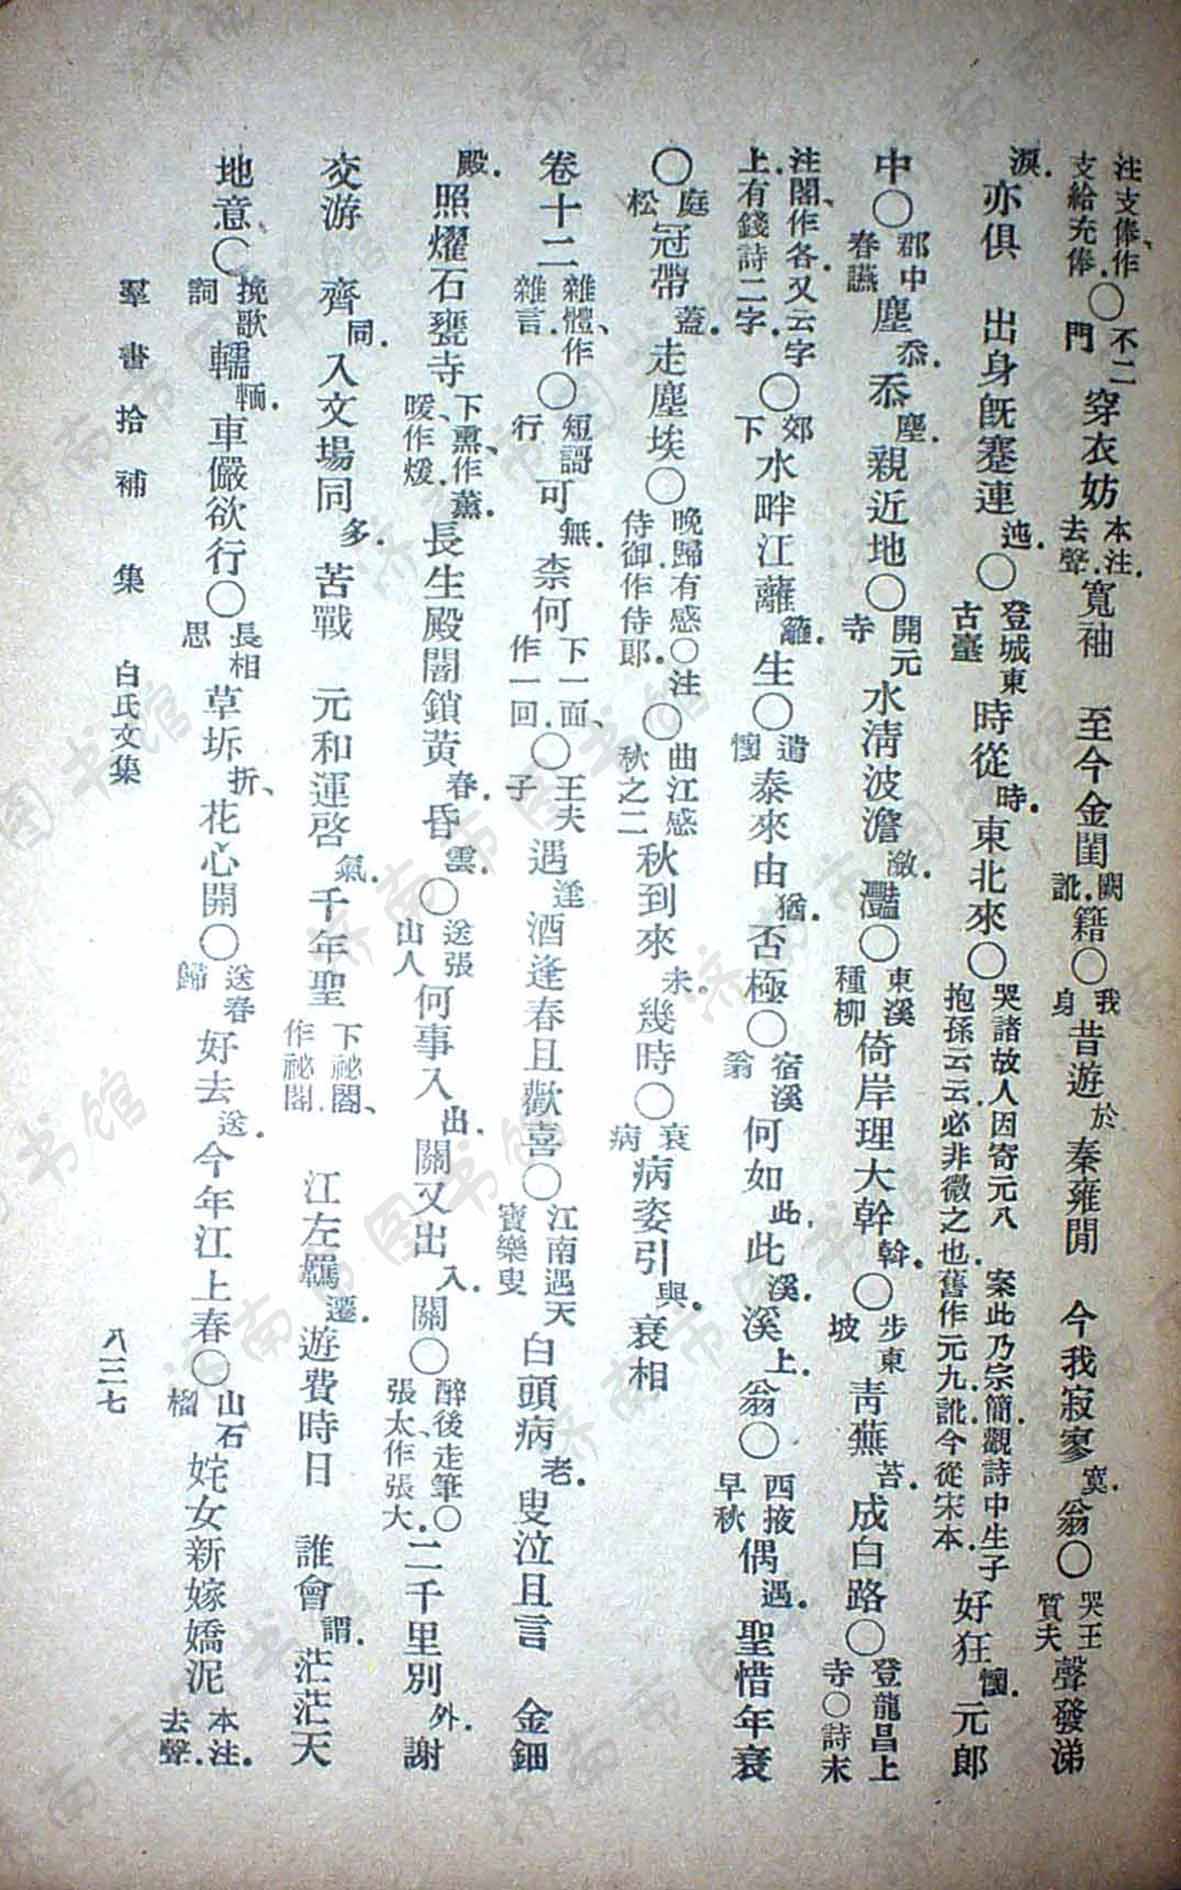 注支俸、作支給充俸.〇不二門穿衣妨本注.去聲.寬袖　至今金閨闕訛.籍〇我身昔遊於秦雍閒　今我寂寥寞.翁〇哭王質夫聲發涕
淚.亦俱　出身既蹇連迍.〇登城東古臺時從時.東北來〇哭諸故人因寄元八　案此乃宗簡.觀詩中生子抱孫云云.必非微之也.舊作元九.訛.今從宋本.好狂懷.元郎
中〇郡中春讌塵忝.忝塵.親近地〇開元寺水清波澹澉.灩〇東溪種柳倚岸理大幹榦.〇步東坡青蕪苔.成白路〇登龍昌上寺〇詩末
注閣、作各.又云字上有錢詩二字.〇郊下水畔江蘺籬.生〇遣懷泰來由猶.否極〇宿溪翁何如此.此溪.溪上.翁〇西掖早秋偶遇.聖惜年衰
〇庭松冠帶蓋.走塵埃〇晚歸有感〇注侍御作侍郎.〇曲江感秋之二秋到來未.幾時〇衰病病姿引與.衰相
卷十二雜體、作雜言.〇短謌行可無.柰何下一面、作一回.〇王夫子遇逢酒逢春且歡喜〇江南遇天寶樂叟白頭病老.叟泣且言　金鈿
殿.照燿石甕寺下熏、作薰.暖、作煖.長生殿闇鎖黃春.昏雲.〇送張山人何事入出.關又出入.關〇醉後走筆〇張太、作張大.二千里別外.謝
交游　齊同.入文場同多.苦戰　元和運啓氣.千年聖下祕閣、作祕閣.江左羈遷.遊費時日　誰會謂.茫茫天
地意〇挽歌詞轜輀.車儼欲行〇長相思草坼折、花心開〇送春歸好去送.今年江上春〇山石榴姹女新嫁嬌泥本注.去聲.
羣書拾補　集　白氏文集　八三七